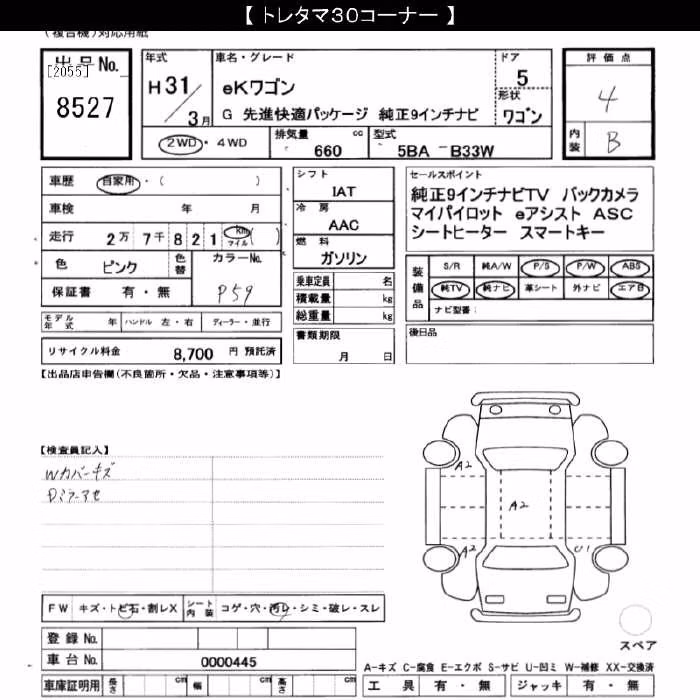 【 トレタマ30コーナー 】
(複合機)対応用紙
出品No.
[2055]
8527
年式
H 31/3月
車名・グレード
eKワゴン
G 先進快適パッケージ 純正9インチナビ
ドア
5
形状
ワゴン
2WD・4WD
排気量 cc
660
型式
5BA -B33W
評価点
4
内装 B
車歴 自家用・( )
車検 年 月
走行 2万 7千 8 2 1 km マイル ( )
色 ピンク
色替
カラーNo.
P59
保証書 有・無
モデル年式 年 ハンドル 左・右 ディーラー・並行
リサイクル料金 8,700 円 預託済
シフト
IAT
冷房
AAC
燃料
ガソリン
乗車定員 名
積載量 kg
総重量 kg
書類期限
月 日
セールスポイント
純正9インチナビTV バックカメラ
マイパイロット eアシスト ASC
シートヒーター スマートキー
装備品
S/R 純A/W P/S P/W ABS
純TV 純ナビ 革シート 外ナビ エアB
ナビ型番:
後日品
【出品店申告欄(不良箇所・欠品・注意事項等)】
【検査員記入】
Wカバーキズ
Dミラーアセ
A2
A2
A2
U1
FW キズ・トビ石・割レX
シート内装 コゲ・穴・汚レ・シミ・破レ・スレ
登録No.
車台No. 0000445
車庫証明用 長さ cm 幅 cm 高さ cm
スペア
A-キズ C-腐食 E-エクボ S-サビ U-凹ミ W-補修 XX-交換済
工具 有・無 ジャッキ 有・無